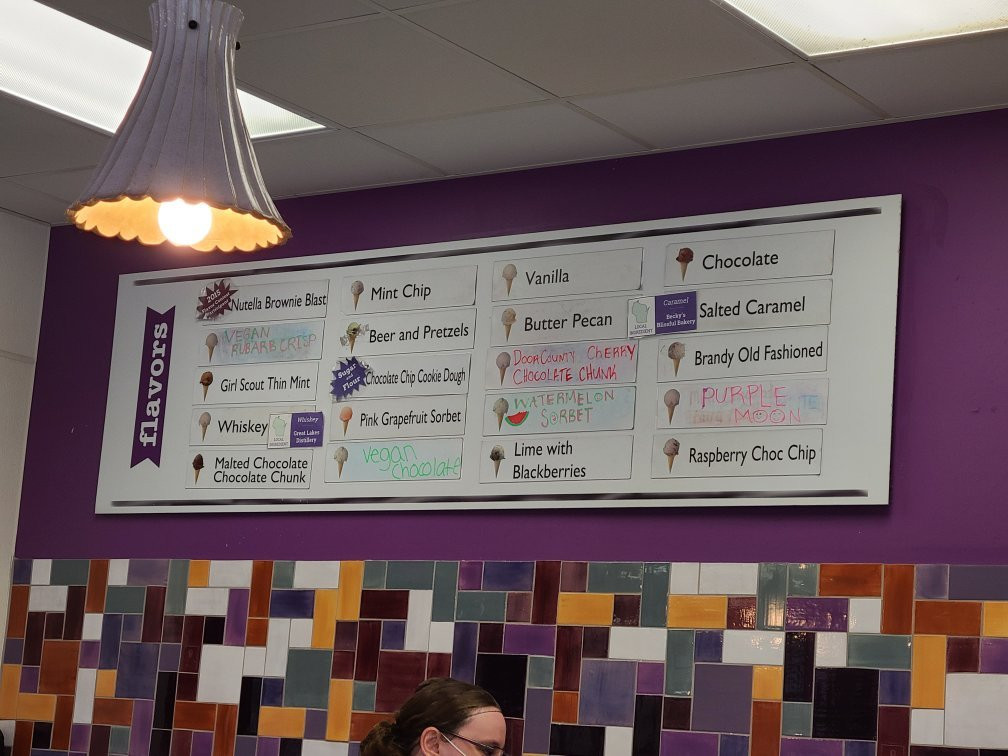 flavors
2015
Nutella Brownie Blast
VEGAN
RUBARB CRISP
Girl Scout Thin Mint
Whiskey
LOCAL
INGREDIENT
Whiskey
Great Lakes
Distillery
Malted Chocolate
Chocolate Chunk
Mint Chip
Beer and Pretzels
Sugar
and
Flour
Chocolate Chip Cookie Dough
Pink Grapefruit Sorbet
Vegan
chocolate
Vanilla
Butter Pecan
DOOR COUNTY CHERRY
CHOCOLATE CHUNK
WATERMELON
SORBET
Lime with
Blackberries
Chocolate
LOCAL
INGREDIENT
Caramel
Becky's
Blissful Bakery
Salted Caramel
Brandy Old Fashioned
PURPLE
MOON
Raspberry Choc Chip